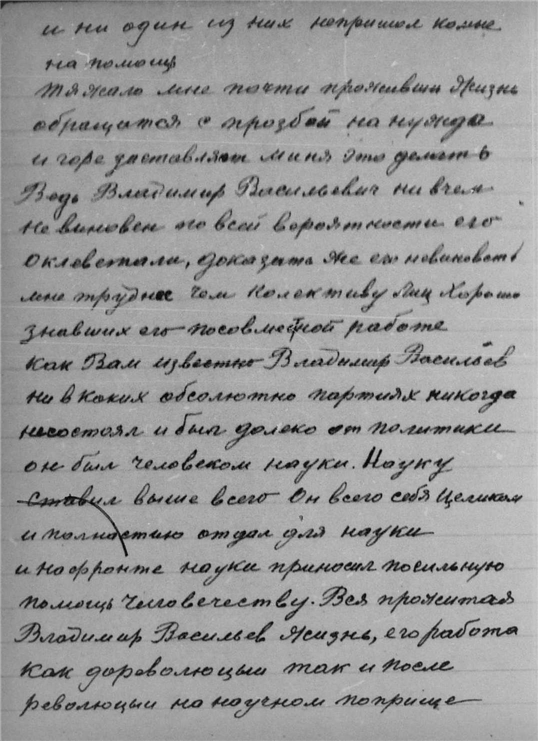 и ни один из них непришол комне
на помощь
Тяжало мне почти проживши жизнь
обращатся с прозбой на нужда
и горе заставляют миня это делать
Ведь Владимир Васильевич ни вчем
не виновен по всей вероятности его
оклевстали, доказать же его невиновсть
мне труднее чем колективу лиц хорошо
знавших его посовместной работе
как Вам известно Владимир Васильев
ни в каких обсолютно партиях никогда
несостоял и был далеко от политики
он был человеком науки. Науку
ставил выше всего он всего себя целиком
и полностию отдал для науки
и нафронте науки приносил посильную
помощь человечеству. Вся прожитая
Владимир Васильев жизнь, его работа
как дореволюцыи так и после
революцыи на научном поприще